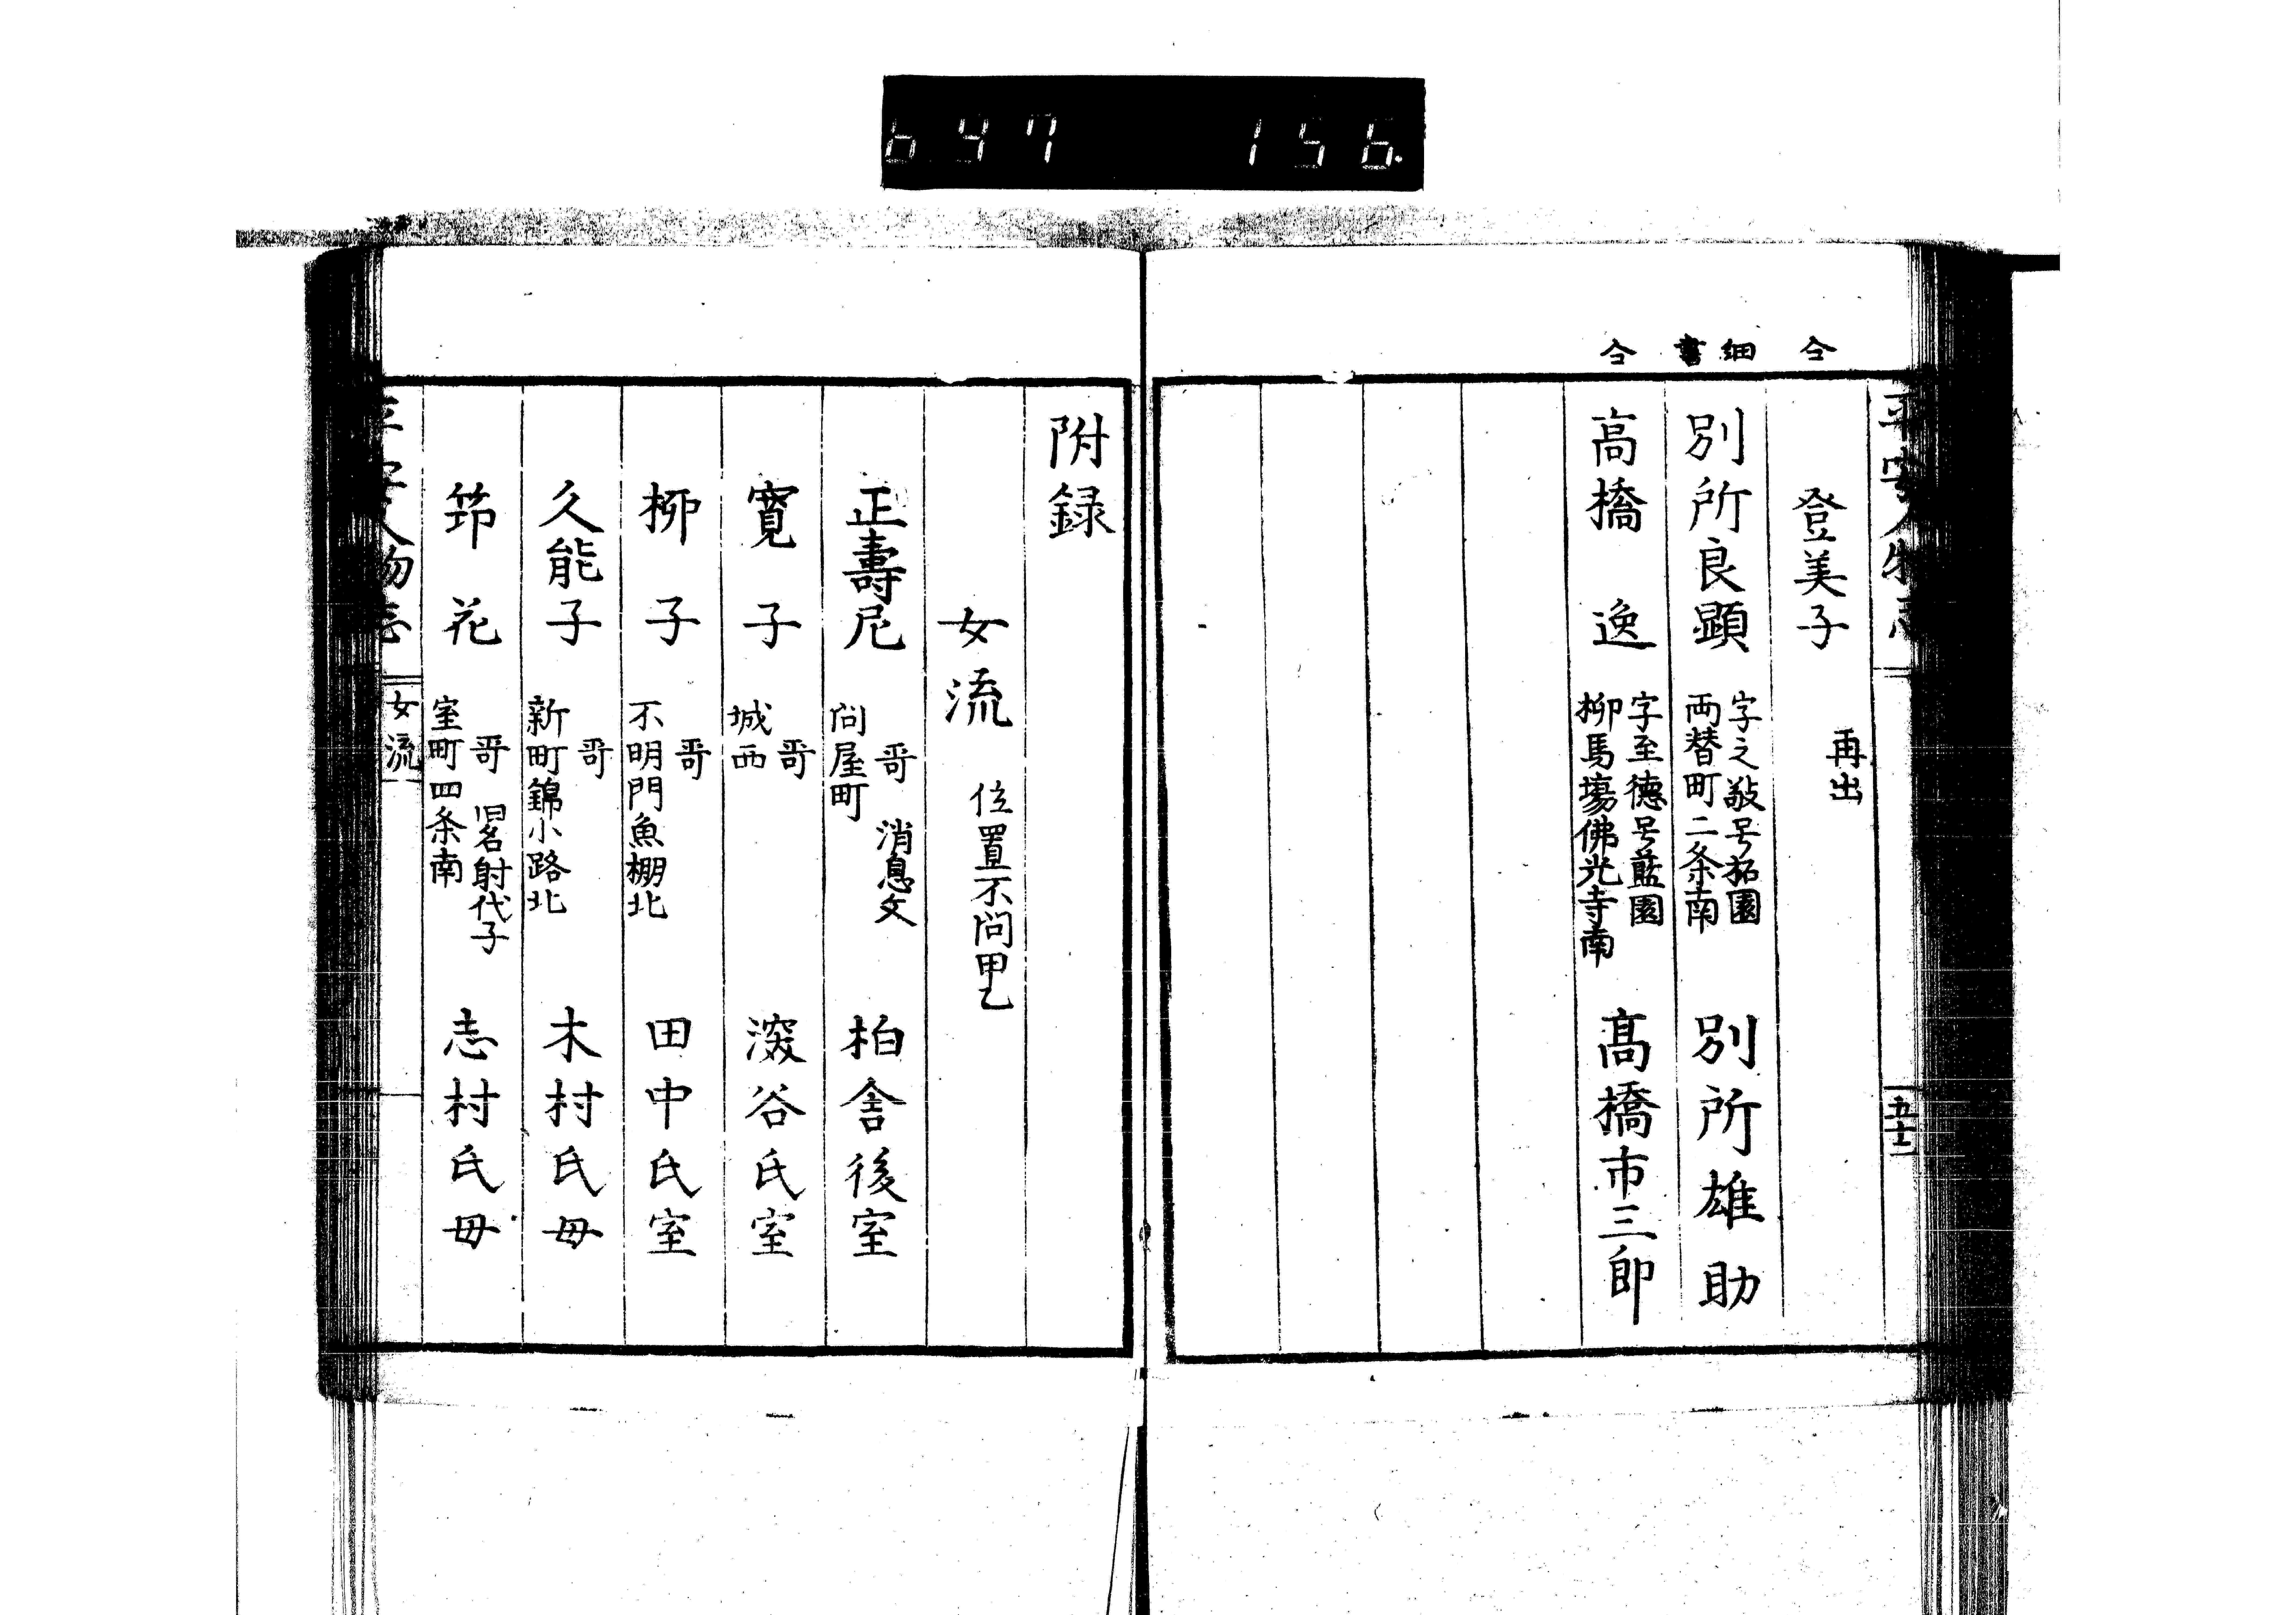 647 156
仝 細書 仝
平安人物志 五十二
登美子 再出
別所良顕 字之敬号拓園 両替町二条南 別所雄助
高橋逸 字至徳号藍園 柳馬場佛光寺南 髙橋市三郎
附録
女流 位置不問甲乙
正壽尼 哥 消息文 问屋町 柏舎後室
寛子 哥 城西 澁谷氏室
栁子 哥 不明門魚棚北 田中氏室
久能子 哥 新町錦小路北 木村氏母
筇花 哥 旧名射代子 室町四条南 志村氏母
平安人物志 女流